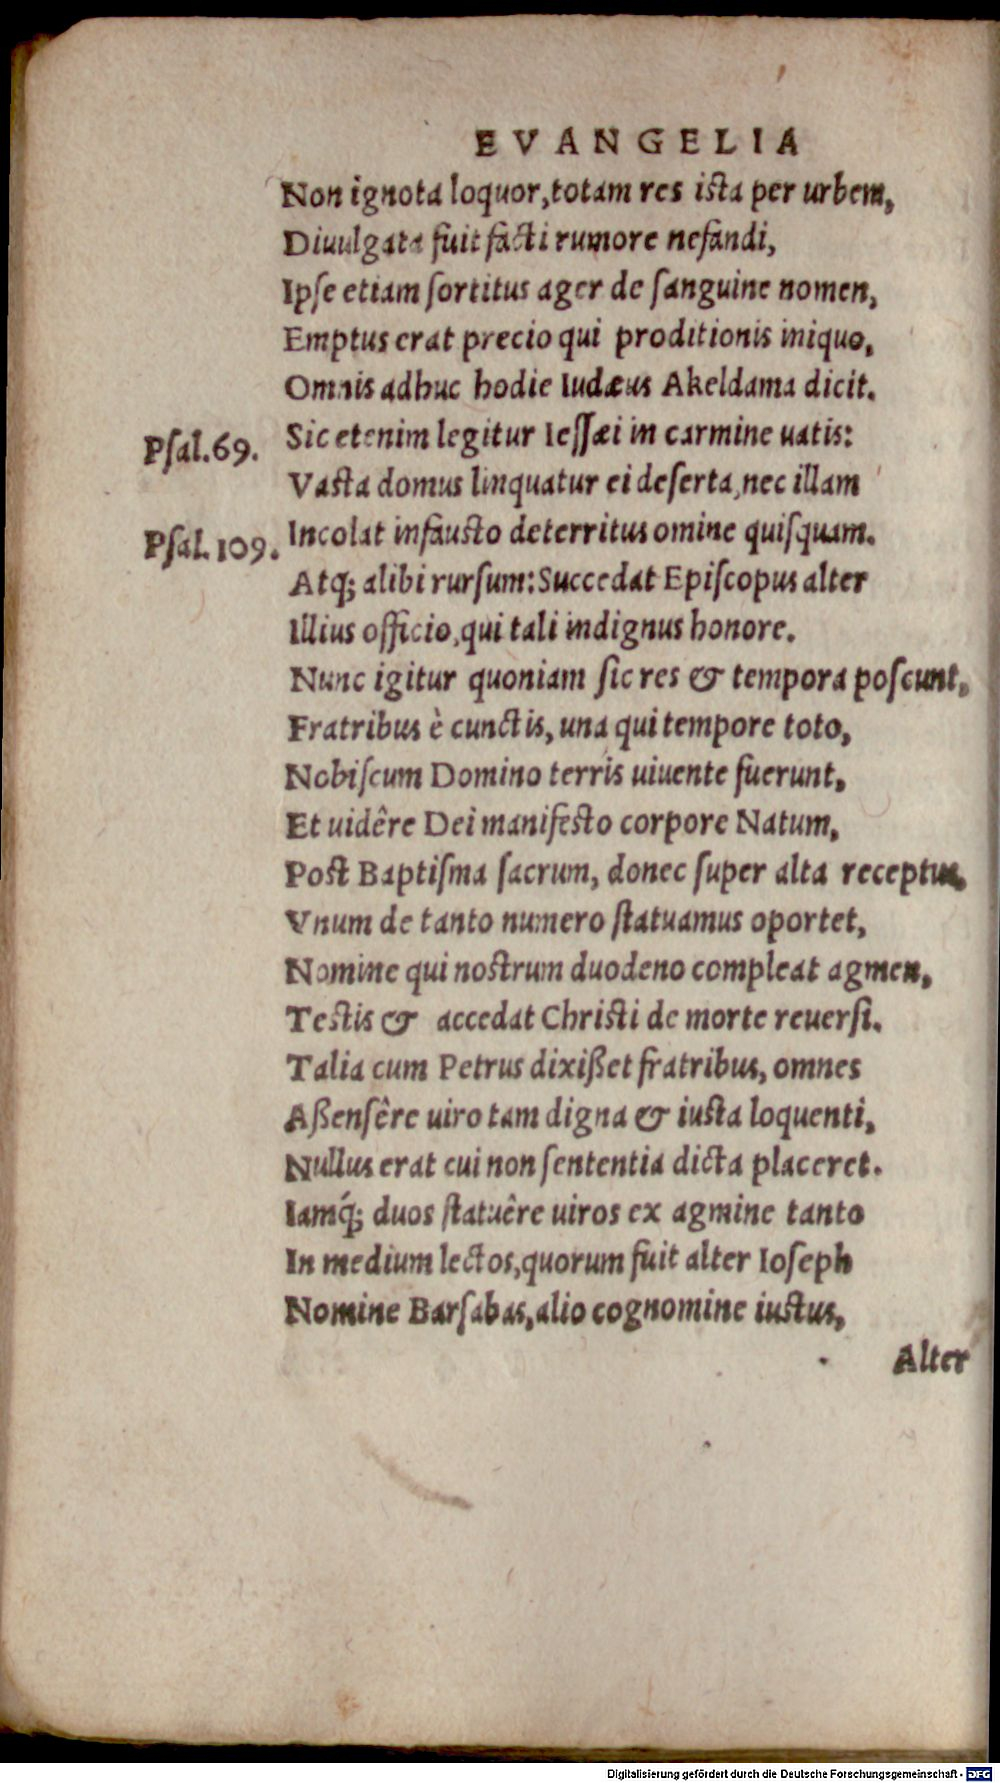 EVANGELIA
Non ignota loquor, totam res ista per urbem,
Diuulgata fuit facti rumore nefandi,
Ipſe etiam ſortitus ager de ſanguine nomen,
Emptus erat precio qui proditionis iniquo,
Omnis adhuc hodie Iudæus Akeldama dicit.
Psal. 69. Sic etenim legitur Ieſſæi in carmine uatis:
Vasta domus linquatur ei deſerta, nec illam
Psal. 109. Incolat infausto deterritus omine quiſquam.
Atq; alibi rurſum: Succedat Epiſcopus alter
Illius officio, qui tali indignus honore.
Nunc igitur quoniam ſic res & tempora poſcunt,
Fratribus è cunctis, una qui tempore toto,
Nobiſcum Domino terris uiuente fuerunt,
Et uidêre Dei manifesto corpore Natum,
Post Baptiſma ſacrum, donec ſuper alta receptus,
Vnum de tanto numero ſtatuamus oportet,
Nomine qui nostrum duodeno compleat agmen,
Testis & accedat Christi de morte reuerſi.
Talia cum Petrus dixißet fratribus, omnes
Aßenſêre uiro tam digna & iusta loquenti,
Nullus erat cui non ſententia dicta placeret.
Iamq́; duos ſtatuêre uiros ex agmine tanto
In medium lectos, quorum fuit alter Ioſeph
Nomine Barſabas, alio cognomine iustus,
Alter
Digitalisierung gefördert durch die Deutsche Forschungsgemeinschaft - DFG